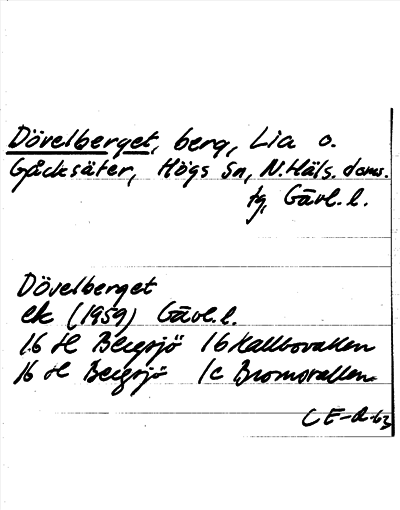 Dövelberget, berg, Lia o.
Gåcksäter, Högs sn, N. Häls. doms.
tg, Gävl. l.
Dövelberget
ek (1959) Gävl. l.
16 H Bergsjö 1b Kallbovallen
16 H Bergsjö 1c Bromsvallen
CE-R-63